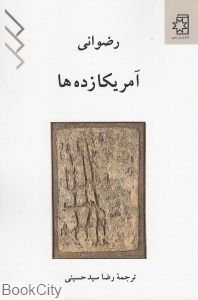 رضوانی
آمریکازده‌ها
ترجمهٔ رضا سیدحسینی
BookCity